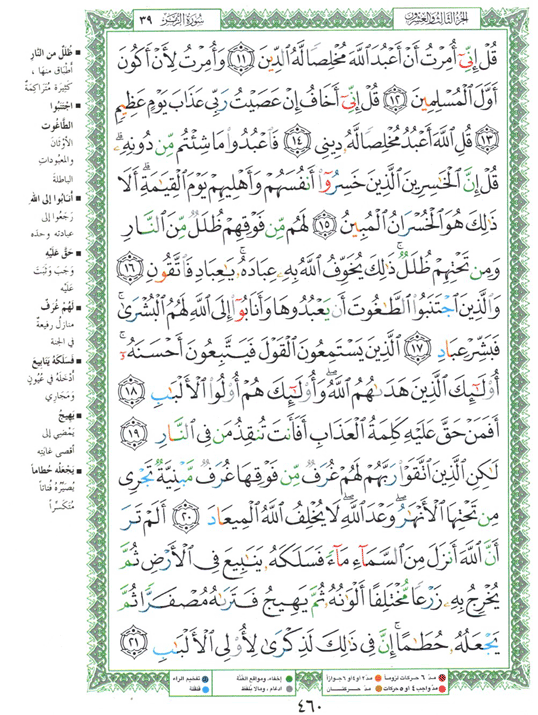 الجزء الثالث والعشرون
سورة الزمر ٣٩
قُلْ إِنِّىٓ أُمِرْتُ أَنْ أَعْبُدَ ٱللَّهَ مُخْلِصًا لَّهُ ٱلدِّينَ ﴿١١﴾ وَأُمِرْتُ لِأَنْ أَكُونَ
أَوَّلَ ٱلْمُسْلِمِينَ ﴿١٢﴾ قُلْ إِنِّىٓ أَخَافُ إِنْ عَصَيْتُ رَبِّى عَذَابَ يَوْمٍ عَظِيمٍ
﴿١٣﴾ قُلِ ٱللَّهَ أَعْبُدُ مُخْلِصًا لَّهُۥ دِينِى ﴿١٤﴾ فَٱعْبُدُوا۟ مَا شِئْتُم مِّن دُونِهِۦ ۗ
قُلْ إِنَّ ٱلْخَٰسِرِينَ ٱلَّذِينَ خَسِرُوٓا۟ أَنفُسَهُمْ وَأَهْلِيهِمْ يَوْمَ ٱلْقِيَٰمَةِ ۗ أَلَا
ذَٰلِكَ هُوَ ٱلْخُسْرَانُ ٱلْمُبِينُ ﴿١٥﴾ لَهُم مِّن فَوْقِهِمْ ظُلَلٌ مِّنَ ٱلنَّارِ
وَمِن تَحْتِهِمْ ظُلَلٌ ۚ ذَٰلِكَ يُخَوِّفُ ٱللَّهُ بِهِۦ عِبَادَهُۥ ۚ يَٰعِبَادِ فَٱتَّقُونِ ﴿١٦﴾
وَٱلَّذِينَ ٱجْتَنَبُوا۟ ٱلطَّٰغُوتَ أَن يَعْبُدُوهَا وَأَنَابُوٓا۟ إِلَى ٱللَّهِ لَهُمُ ٱلْبُشْرَىٰ ۚ
فَبَشِّرْ عِبَادِ ﴿١٧﴾ ٱلَّذِينَ يَسْتَمِعُونَ ٱلْقَوْلَ فَيَتَّبِعُونَ أَحْسَنَهُۥٓ ۚ
أُو۟لَٰٓئِكَ ٱلَّذِينَ هَدَىٰهُمُ ٱللَّهُ ۖ وَأُو۟لَٰٓئِكَ هُمْ أُو۟لُوا۟ ٱلْأَلْبَٰبِ ﴿١٨﴾
أَفَمَنْ حَقَّ عَلَيْهِ كَلِمَةُ ٱلْعَذَابِ أَفَأَنتَ تُنقِذُ مَن فِى ٱلنَّارِ ﴿١٩﴾
لَٰكِنِ ٱلَّذِينَ ٱتَّقَوْا۟ رَبَّهُمْ لَهُمْ غُرَفٌ مِّن فَوْقِهَا غُرَفٌ مَّبْنِيَّةٌ تَجْرِى
مِن تَحْتِهَا ٱلْأَنْهَٰرُ ۖ وَعْدَ ٱللَّهِ ۖ لَا يُخْلِفُ ٱللَّهُ ٱلْمِيعَادَ ﴿٢٠﴾ أَلَمْ تَرَ
أَنَّ ٱللَّهَ أَنزَلَ مِنَ ٱلسَّمَآءِ مَآءً فَسَلَكَهُۥ يَنَٰبِيعَ فِى ٱلْأَرْضِ ثُمَّ
يُخْرِجُ بِهِۦ زَرْعًا مُّخْتَلِفًا أَلْوَٰنُهُۥ ثُمَّ يَهِيجُ فَتَرَىٰهُ مُصْفَرًّا ثُمَّ
يَجْعَلُهُۥ حُطَٰمًا ۚ إِنَّ فِى ذَٰلِكَ لَذِكْرَىٰ لِأُو۟لِى ٱلْأَلْبَٰبِ ﴿٢١﴾
■ ظُلَلٌ من النَّارِ
أطْبَاقٌ منهَا،
كثيرَة مُتَراكِمَةٌ
■ اجْتَنَبُوا
الطَّاغُوت
الأوْثانَ
والمعبُوداتِ
الباطلةَ
■ أنَابُوا إلى الله
رَجَعُوا إلى
عبادتِه وحدَه
■ حَقَّ عَلَيْهِ
وَجَبَ وَثَبَتَ
عَلَيْهِ
■ لَهُمْ غُرَفٌ
منازلُ رفيعةٌ
في الجنة
■ فَسَلَكَهُ يَنَابِيعَ
أدْخَلَهُ في عُيُونٍ
وَمَجَارِي
■ يَهِيجُ
يَمْضي إلى
أقصى غايَتِه
■ يَجْعَلُه حُطاماً
يُصَيِّرُهُ فُتَاتاً
مُتَكَسِّراً
مدّ ٦ حركات لزوماً
مدّ ٢ او ٤ او ٦ جوازاً
إخفاء، ومواقع الغُنَّة
تفخيم الراء
مدّ واجب ٤ او ٥ حركات
مدّ حركتــان
ادغام، ومالا يُلفظ
قلقلة
٤٦٠